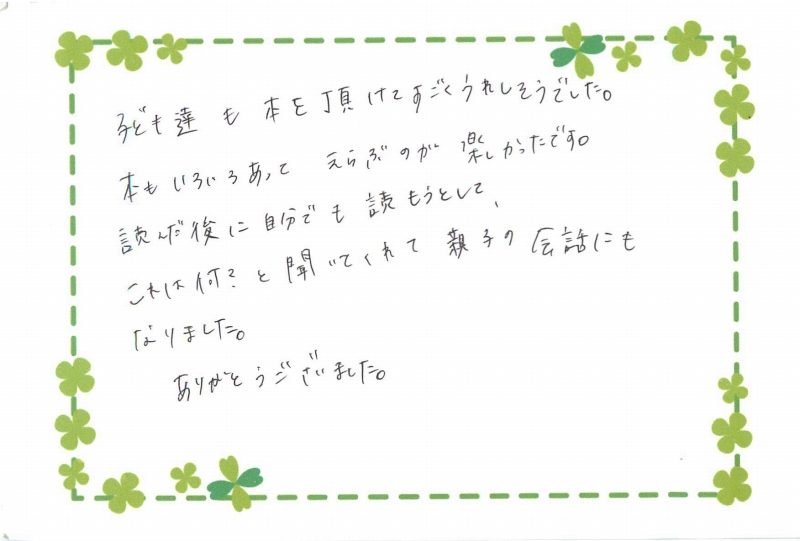 子ども達も本を頂けてすごくうれしそうでした。
本もいろいろあって えらぶのが楽しかったです。
読んだ後に自分でも読もうとして、
これは何?と聞いてくれて親子の会話にも
なりました。
ありがとうございました。